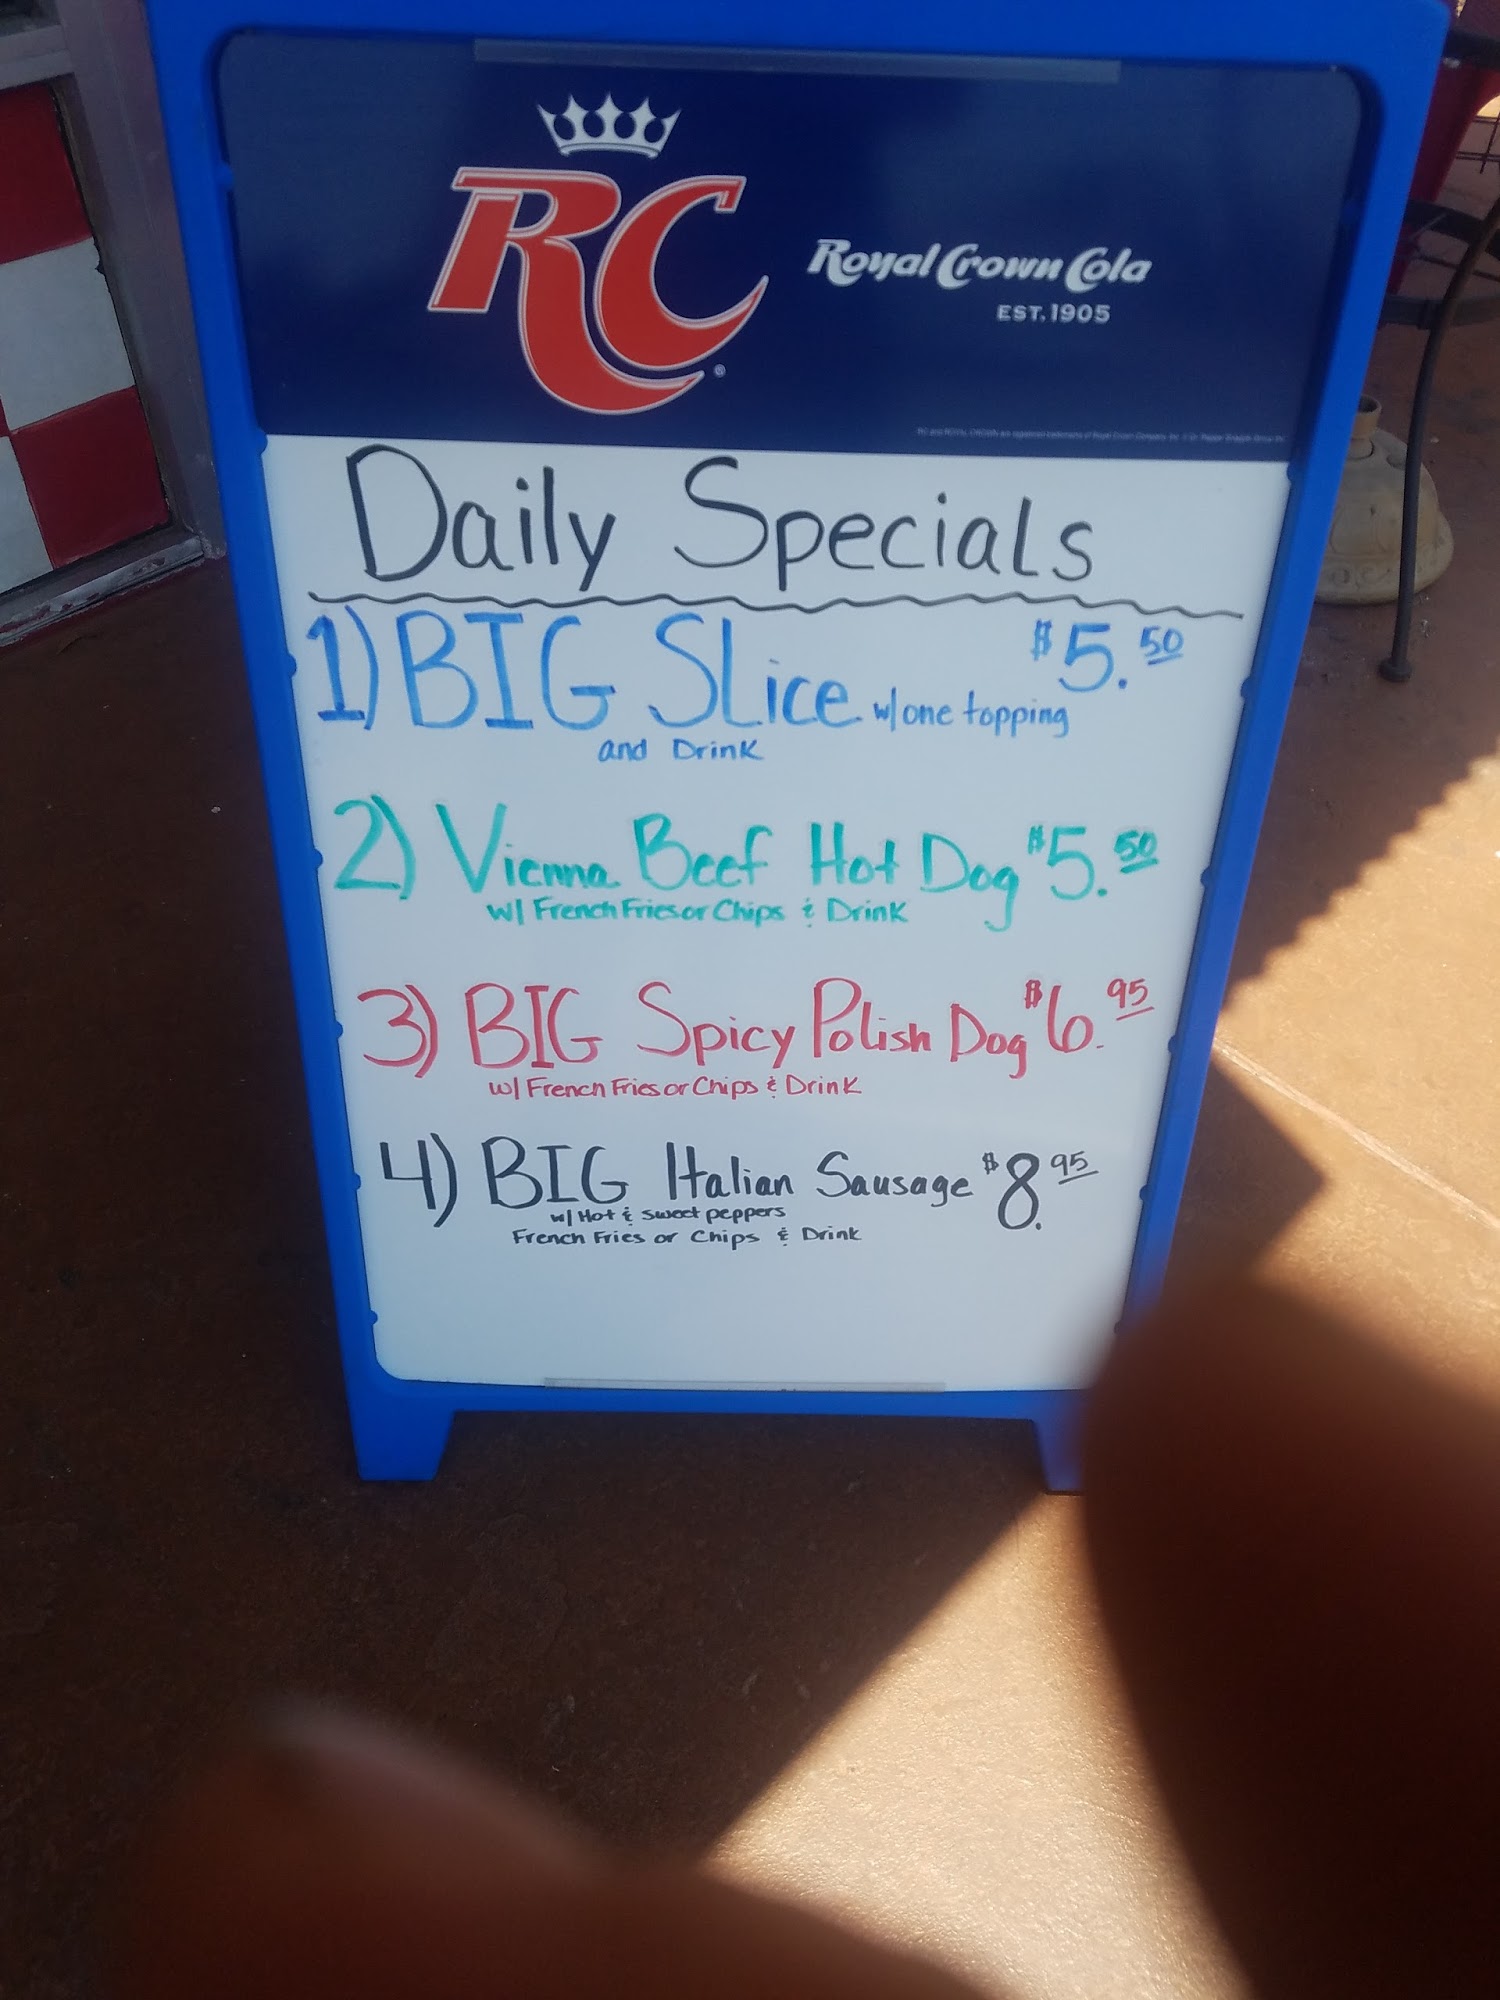 RC
Royal Crown Cola
EST. 1905
Daily Specials
1) BIG SLice w/one topping $5.50
and Drink
2) Vienna Beef Hot Dog $5.50
w/ French Fries or Chips & Drink
3) BIG Spicy Polish Dog $6.95
w/ French Fries or Chips & Drink
4) BIG Italian Sausage $8.95
w/ Hot & sweet peppers
French Fries or Chips & Drink